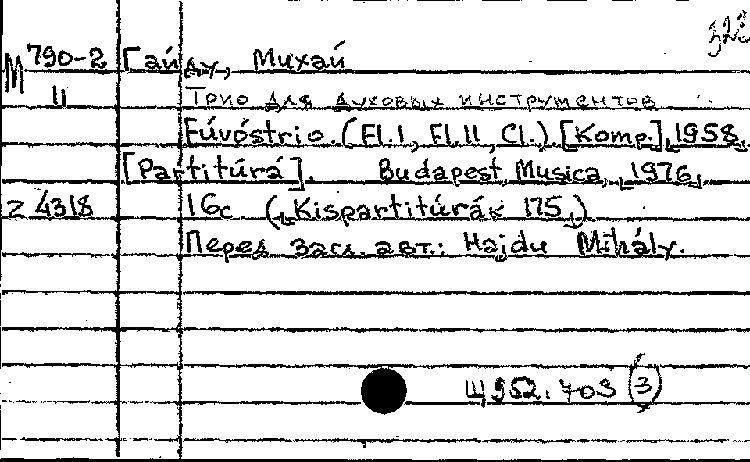 М 790-2 Гайду, Михай
II Трио для духовых инструментов
Fúvóstrio. (Fl.I, Fl.II, Cl.). [Komp.], 1958.
[Partitúrá]. Budapest, Musica, 1976.
Z 4318 16с (Kispartitúrák 175)
Перед загл. авт.: Hajdu Mihály.
Щ952.703 (3)